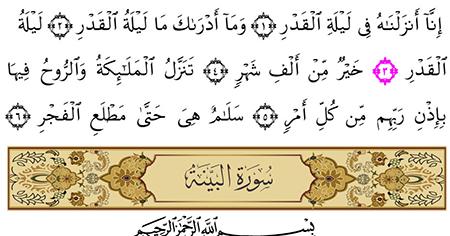 إِنَّآ أَنزَلْنَـٰهُ فِى لَيْلَةِ ٱلْقَدْرِ ﴿١﴾ وَمَآ أَدْرَىٰكَ مَا لَيْلَةُ ٱلْقَدْرِ ﴿٢﴾ لَيْلَةُ
ٱلْقَدْرِ ﴿٣﴾ خَيْرٌ مِّنْ أَلْفِ شَهْرٍ ﴿٤﴾ تَنَزَّلُ ٱلْمَلَـٰٓئِكَةُ وَٱلرُّوحُ فِيهَا
بِإِذْنِ رَبِّهِم مِّن كُلِّ أَمْرٍ ﴿٥﴾ سَلَـٰمٌ هِىَ حَتَّىٰ مَطْلَعِ ٱلْفَجْرِ ﴿٦﴾
سُورَةُ البَيِّنَةِ
بِسْمِ ٱللَّهِ ٱلرَّحْمَـٰنِ ٱلرَّحِيمِ